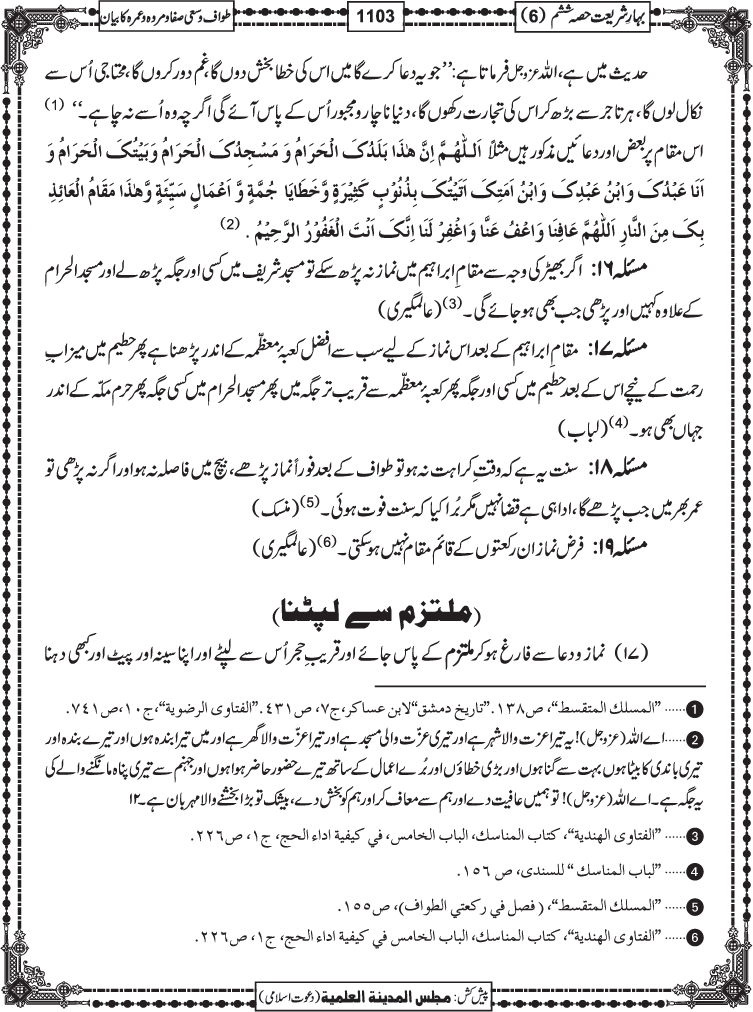 بہارِ شریعت حصہ ششم (6)
1103
طواف وسعی صفا و مروہ وعمرہ کا بیان
حدیث میں ہے، اللہ عزوجل فرماتا ہے: ’’جو یہ دعا کرے گا میں اس کی خطا بخش دوں گا، غم دور کروں گا، محتاجی اُس سے
نکال لوں گا، ہر تاجر سے بڑھ کر اس کی تجارت رکھوں گا، دنیا ناچار و مجبور اُس کے پاس آئے گی اگرچہ وہ اُسے نہ چاہے۔‘‘ (1)
اس مقام پر بعض اور دعائیں مذکور ہیں مثلاً اَللّٰھُمَّ اِنَّ ھٰذَا بَلَدُکَ الْحَرَامُ وَ مَسْجِدُکَ الْحَرَامُ وَبَیْتُکَ الْحَرَامُ وَ
اَنَا عَبْدُکَ وَابْنُ عَبْدِکَ وَابْنُ اَمَتِکَ اَتَیْتُکَ بِذُنُوْبٍ کَثِیْرَۃٍ وَّخَطَایَا جُمَّۃٍ وَّ اَعْمَالٍ سَیِّئَۃٍ وَّھٰذَا مَقَامُ الْعَائِذِ
بِکَ مِنَ النَّارِ اَللّٰھُمَّ عَافِنَا وَاعْفُ عَنَّا وَاغْفِرْ لَنَا اِنَّکَ اَنْتَ الْغَفُوْرُ الرَّحِیْمُ . (2)
مسئلہ ۱۶: اگر بھیڑ کی وجہ سے مقامِ ابراہیم میں نماز نہ پڑھ سکے تو مسجد شریف میں کسی اور جگہ پڑھ لے اور مسجد الحرام
کے علاوہ کہیں اور پڑھی جب بھی ہو جائے گی۔ (3) (عالمگیری)
مسئلہ ۱۷: مقامِ ابراہیم کے بعد اس نماز کے لیے سب سے افضل کعبۂ معظّمہ کے اندر پڑھنا ہے پھر حطیم میں میزابِ
رحمت کے نیچے اس کے بعد حطیم میں کسی اور جگہ پھر کعبۂ معظّمہ سے قریب تر جگہ میں پھر مسجد الحرام میں کسی جگہ پھر حرمِ مکّہ کے اندر
جہاں بھی ہو۔ (4) (لباب)
مسئلہ ۱۸: سنت یہ ہے کہ وقتِ کراہت نہ ہو تو طواف کے بعد فوراً نماز پڑھے، بیچ میں فاصلہ نہ ہو اور اگر نہ پڑھی تو
عمر بھر میں جب پڑھے گا، ادا ہی ہے قضا نہیں مگر بُرا کیا کہ سنت فوت ہوئی۔ (5) (منسک)
مسئلہ ۱۹: فرض نماز ان رکعتوں کے قائم مقام نہیں ہوسکتی۔ (6) (عالمگیری)
(ملتزم سے لپٹنا)
(۱۷) نماز و دعا سے فارغ ہو کر ملتزم کے پاس جائے اور قریبِ حجر اُس سے لپٹے اور اپنا سینہ اور پیٹ اور کبھی دہنا
1 ...... ”المسلك المتقسط“، ص۱۳۸. ”تاريخ دمشق“ لابن عساكر، ج۷، ص۴۳۱. ”الفتاوى الرضوية“، ج۱۰، ص۷۴۱.
2 ...... اے اللہ (عزوجل)! یہ تیرا عزت والا شہر ہے اور تیری عزّت والی مسجد ہے اور تیرا عزّت والا گھر ہے اور میں تیرا بندہ ہوں اور تیرے بندہ اور
تیری باندی کا بیٹا ہوں بہت سے گناہوں اور بڑی خطاؤں اور بُرے اعمال کے ساتھ تیرے حضور حاضر ہوا ہوں اور جہنم سے تیری پناہ مانگنے والے کی
یہ جگہ ہے۔ اے اللہ (عزوجل)! تو ہمیں عافیت دے اور ہم سے معاف کر اور ہم کو بخش دے، بیشک تو بڑا بخشنے والا مہربان ہے۔۱۲
3 ...... ”الفتاوى الهندية“، كتاب المناسك، الباب الخامس، في كيفية اداء الحج، ج۱، ص۲۲۶.
4 ...... ”لباب المناسك“ للسندى، ص ۱۵۶.
5 ...... ”المسلك المتقسط“، (فصل في ركعتي الطواف)، ص۱۵۵.
6 ...... ”الفتاوى الهندية“، كتاب المناسك، الباب الخامس في كيفية اداء الحج، ج۱، ص۲۲۶.
پیش کش: مجلس المدينة العلمية (دعوتِ اسلامی)